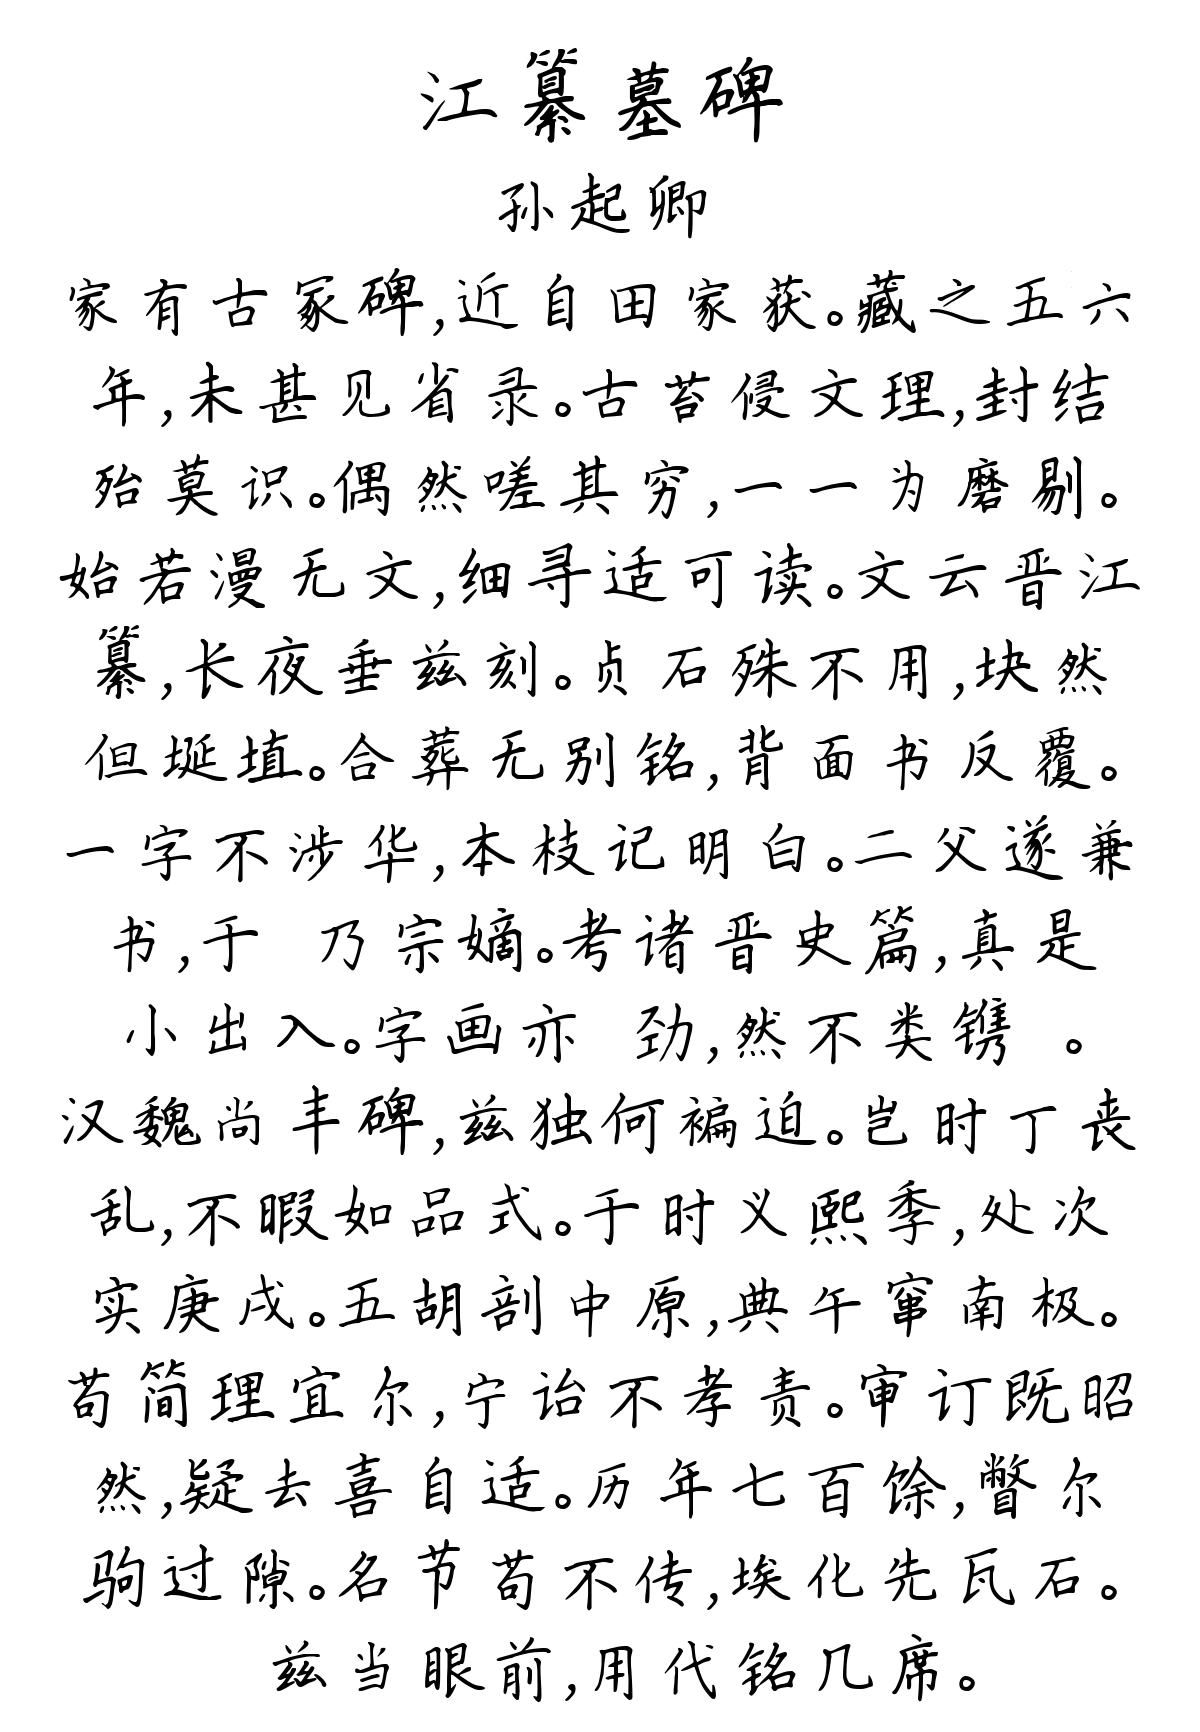 江纂墓碑
孙起卿
家有古冢碑,近自田家获。藏之五六
年,未甚见省录。古苔侵文理,封结
殆莫识。偶然嗟其穷,一一为磨剔。
始若漫无文,细寻适可读。文云晋江
纂,长夜垂兹刻。贞石殊不用,块然
但埏埴。合葬无别铭,背面书反覆。
一字不涉华,本枝记明白。二父遂兼
书,于 乃宗嫡。考诸晋史篇,真是
小出入。字画亦 劲,然不类镌 。
汉魏尚丰碑,兹独何褊迫。岂时丁丧
乱,不暇如品式。于时义熙季,处次
实庚戌。五胡剖中原,典午窜南极。
苟简理宜尔,宁诒不孝责。审订既昭
然,疑去喜自适。历年七百馀,瞥尔
驹过隙。名节苟不传,埃化先瓦石。
兹当眼前,用代铭几席。